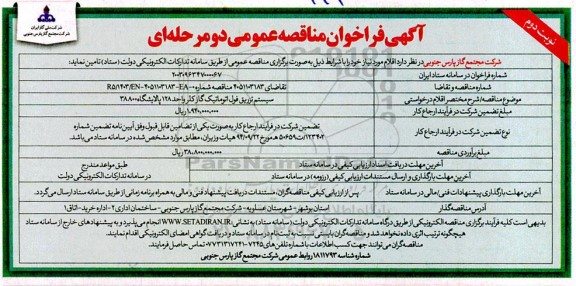 نوبت دوم
شرکت ملی گاز ایران
شرکت مجتمع گاز پارس جنوبی
آگهی فراخوان مناقصه عمومی دو مرحله‌ای
شرکت مجتمع گاز پارس جنوبی در نظر دارد اقلام مورد نیاز خود را با شرایط ذیل به صورت برگزاری مناقصه عمومی از طریق سامانه تدارکات الکترونیکی دولت (ستاد) تامین نماید:
شماره فراخوان در سامانه ستاد ایران
شماره مناقصه و تقاضا
موضوع مناقصه/شرح مختصر اقلام درخواستی سیستم تزریق فول اتوماتیک گاز کلر واحد ۱۲۸ پالایشگاه
مبلغ تضمین شرکت در فرآیند ارجاع کار ریال
نوع تضمین شرکت در فرآیند ارجاع کار تضمین شرکت در فرآیند ارجاع کار به صورت یکی از تضامین قابل قبول وفق آیین نامه تضمین شماره
۱۲۳۴۰۲/ت۵۰۶۵۹ هـ مورخ ۹۴/۰۹/۲۲ هیات وزیران، مطابق موارد مشخص شده در سامانه ستاد می‌باشد.
مبلغ برآوردی مناقصه ۳۸،۸۰۰،۰۰۰،۰۰۰ ریال
آخرین مهلت دریافت اسناد ارزیابی کیفی در سامانه ستاد طبق مواعد مندرج
آخرین مهلت بارگذاری و ارسال مستندات ارزیابی کیفی (رزومه) در سامانه ستاد در سامانه تدارکات الکترونیکی دولت
آخرین مهلت بارگذاری پیشنهادات فنی/مالی در سامانه ستاد پس از ارزیابی کیفی مناقصه‌گران، مستندات دریافت پیشنهاد فنی و مالی به همراه برنامه زمانی از طریق سامانه ستاد ارسال می‌گردد.
آدرس مناقصه‌گذار استان بوشهر- شهرستان عسلویه- شرکت مجتمع گاز پارس جنوبی- ساختمان اداری ۲- اداره خرید- اتاق ۱
بدیهی است کلیه فرآیند برگزاری مناقصه الکترونیکی از طریق درگاه سامانه تدارکات الکترونیکی دولت (سامانه ستاد) به نشانی WWW.SETADIRAN.IR انجام می‌پذیرد و به پیشنهادهای خارج از سامانه ستاد
هیچگونه ترتیب اثری داده نخواهد شد و مناقصه‌گران بایستی نسبت به ثبت نام در سامانه ستاد و دریافت گواهی امضای الکترونیکی اقدام نمایند.
مناقصه‌گران می‌توانند جهت کسب اطلاعات با شماره تلفن‌های تماس حاصل فرمایند.
شماره شناسه ۱۸۱۱۷۹۳ روابط عمومی شرکت مجتمع گاز پارس جنوبی